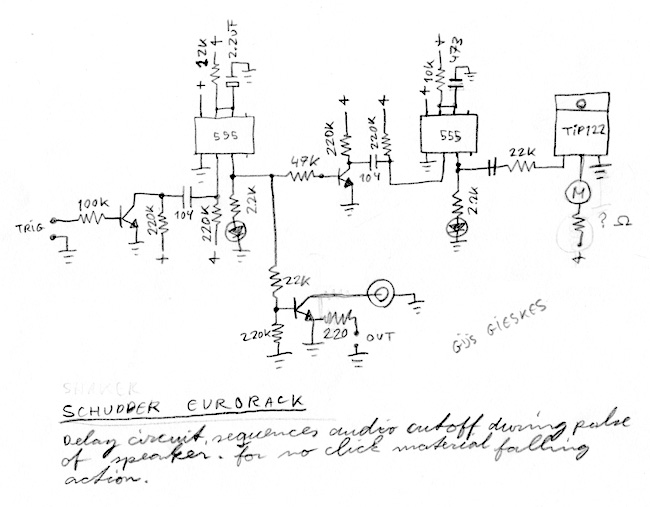 12K
+
2.2µF
+
555
100K
TRIG
220K
+
104
220K
+
2.2K
47K
+
220K
+
220K
104
+
10K
+
473
555
2.2K
22K
TIP122
M
? Ω
+
22K
220K
220
OUT
GIJS GIESKES
SHAKER
SCHUDDER EURORACK
Delay circuit, sequences audio cutoff during pulse
of speaker. for no click material falling
action.